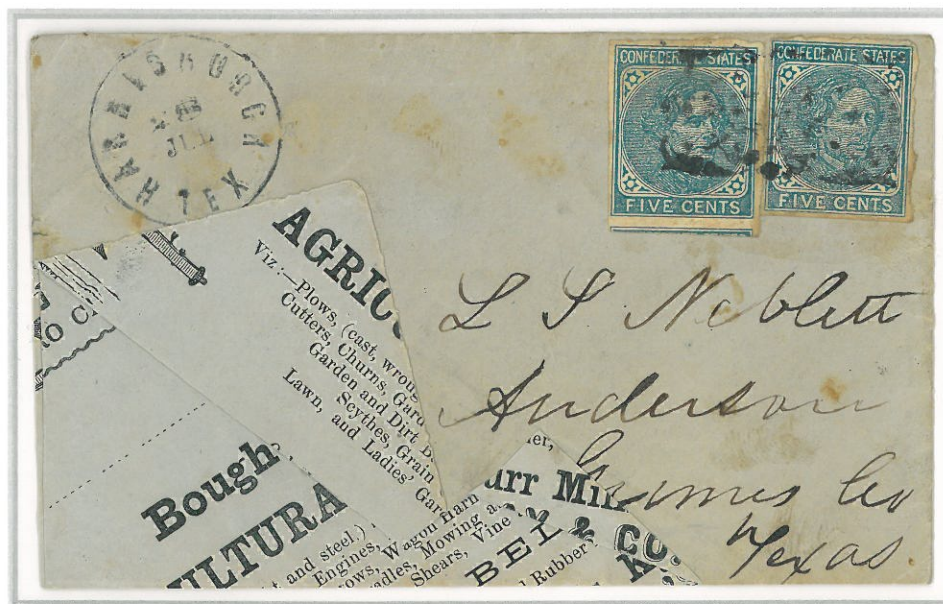 HARRISBURGH TEX
JUL
CONFEDERATE STATES
FIVE CENTS
CONFEDERATE STATES
FIVE CENTS
L S Neblett
Anderson
Grimes Co
Texas
AGRICU
Viz:—Plows, (cast, wroug
Cutters, Churns, Gard
Garden and Dirt B
Scythes, Grain
Lawn, and Ladies' Gar
Bough
ULTURA
t and steel.)
Engines,
rows, Wagon Harn
adles, Mowing a
Shears, Vine
ler,
urr Mil
& CO.
BEL
d Rubber